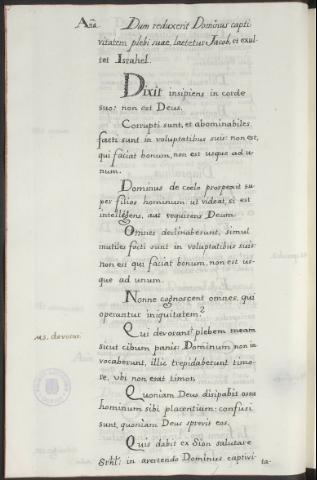 Aña Dum reduxerit Dominus capti
vitatem plebi suæ, laetetur Jacob, et exul
tet Israhel.
Dixit insipiens in corde
suo: non est Deus.
Corrupti sunt, et abominabiles
facti sunt in voluptatibus suis: non est,
qui faciat bonum, non est usque ad u
num.
Dominus de coelo prospexit su
per filios hominum: ut videat, si est
intellegens, aut requirens Deum.
Omnes declinaberunt, simul
inutiles facti sunt in voluptatibus suis:
non est qui faciat bonum, non est us-
que ad unum.
Nonne cognoscent omnes, qui
operantur iniquitatem?
Ms. devorar.
Qui devorant plebem meam
sicut cibum panis: Dominum non in
vocaberunt, illic trepidaberunt timo
re, ubi non erat timor.
Quoniam Deus disipabit ossa
hominum sibi placentium: confusi
sunt, quoniam Deus sprevit eos.
Quis dabit ex Sion salutare
Srhl: in avertendo Dominus captivi-
ta-